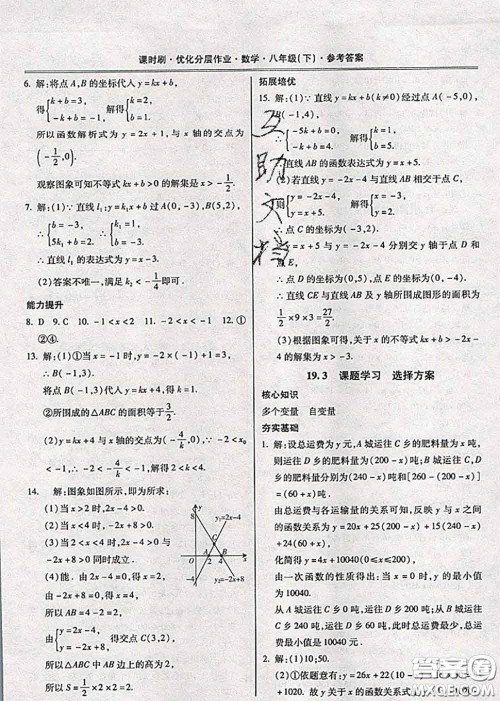 课时刷·优化分层作业·数学·八年级(下)·参考答案
6. 解:将点A,B的坐标代入y=kx+b,
得{k+b=3, -k+b=-1. 解得{k=2, b=1.
所以函数解析式为y=2x+1,与x轴的交点为
(-1/2,0).
观察图象可知不等式kx+b>0的解集是x>-1/2.
7. 解:(1)∵直线l₁:y=k₁x+b过A(0,-3),B(5,2),
∴{b=-3, 5k₁+b=2. ∴{k₁=1, b=-3.
∴直线l₁的表达式为y=x-3;
(2)答案不唯一,满足k<-4/3即可.
能力提升
8. D 9. C 10. -1<x<2 11. -2<x<2 12. ①
②④.
13. 解:(1)①当x=-1时,y=-2×(-1)+1=3,
∴B(-1,3).
将点B(-1,3)代入y=kx+4,得k=1.
②所围成的△ABC的面积是3/2.
(2)y=kx+4与x轴的交点为(-4/k,0),∵-2<x₀
<-1,∴-2<-4/k<-1,解得2<k<4.
14. 解:图象如图所示,即为所求:
(1)当x>2时,2x-4>0.
(2)当x<4时,-2x+8>0.
(3)当2<x<4时,2x-4>0与
-2x+8>0同时成立.
(4)能.由2x-4=0,得x=2,
由-2x+8=0,得x=4,
所以AB=4-2=2,
由{y=2x-4, y=-2x+8. 得交点C(3,2),
所以△ABC中AB边上的高为2.
所以S=1/2×2×2=2.
y
8
y₁=2x-4
O 2 4 x
A B
C
-4
y₂=-2x+8
拓展培优
15. 解:(1)∵直线y=kx+b(k≠0)经过点A(-5,0),
B(-1,4),
∴{-5k+b=0, -k+b=4. 解得{k=1, b=5.
∴直线AB的函数表达式为y=x+5.
(2)若直线y=-2x-4与直线AB相交于点C,
则{y=-2x-4, y=x+5. 解得{x=-3, y=2.
∴点C的坐标为(-3,2).
∵y=x+5与y=-2x-4分别交y轴于点D和
点E,
∴点D的坐标为(0,5),点E的坐标为(0,-4).
∴直线CE与直线AB及y轴所围成图形的面积为
1/2×9×3=27/2.
(3)根据图象可得,关于x的不等式kx+b>-2x-4
的解集是x>-3.
互助文档
19.3 课题学习 选择方案
核心知识
多个变量 自变量
夯实基础
1. 解:设总运费为y元,A城运往C乡的肥料量为x吨,
则运往D乡的肥料量为(200-x)吨;B城运往C,
D乡的肥料量分别为(240-x)吨和[260-(200-x)]
=(60+x)吨.
由总运费与各运输量的关系可知,反映y与x之间
的函数关系为y=20x+25(200-x)+15(240-x)
+24(60+x).
化简得y=4x+10040(0≤x≤200).
由一次函数的性质得出:当x=0时,y的最小值
为10040.
从A城运往C乡0吨,运往D乡200吨;从B城运往
C乡240吨,运往D乡60吨,此时总运费最少,总运
费最小值是10040元.
2. 解:(1)10;50.
(2)①依题意有:y=26x+22(50
+1020.故y关于x的函数关系式
答案圈
MXQE.COM